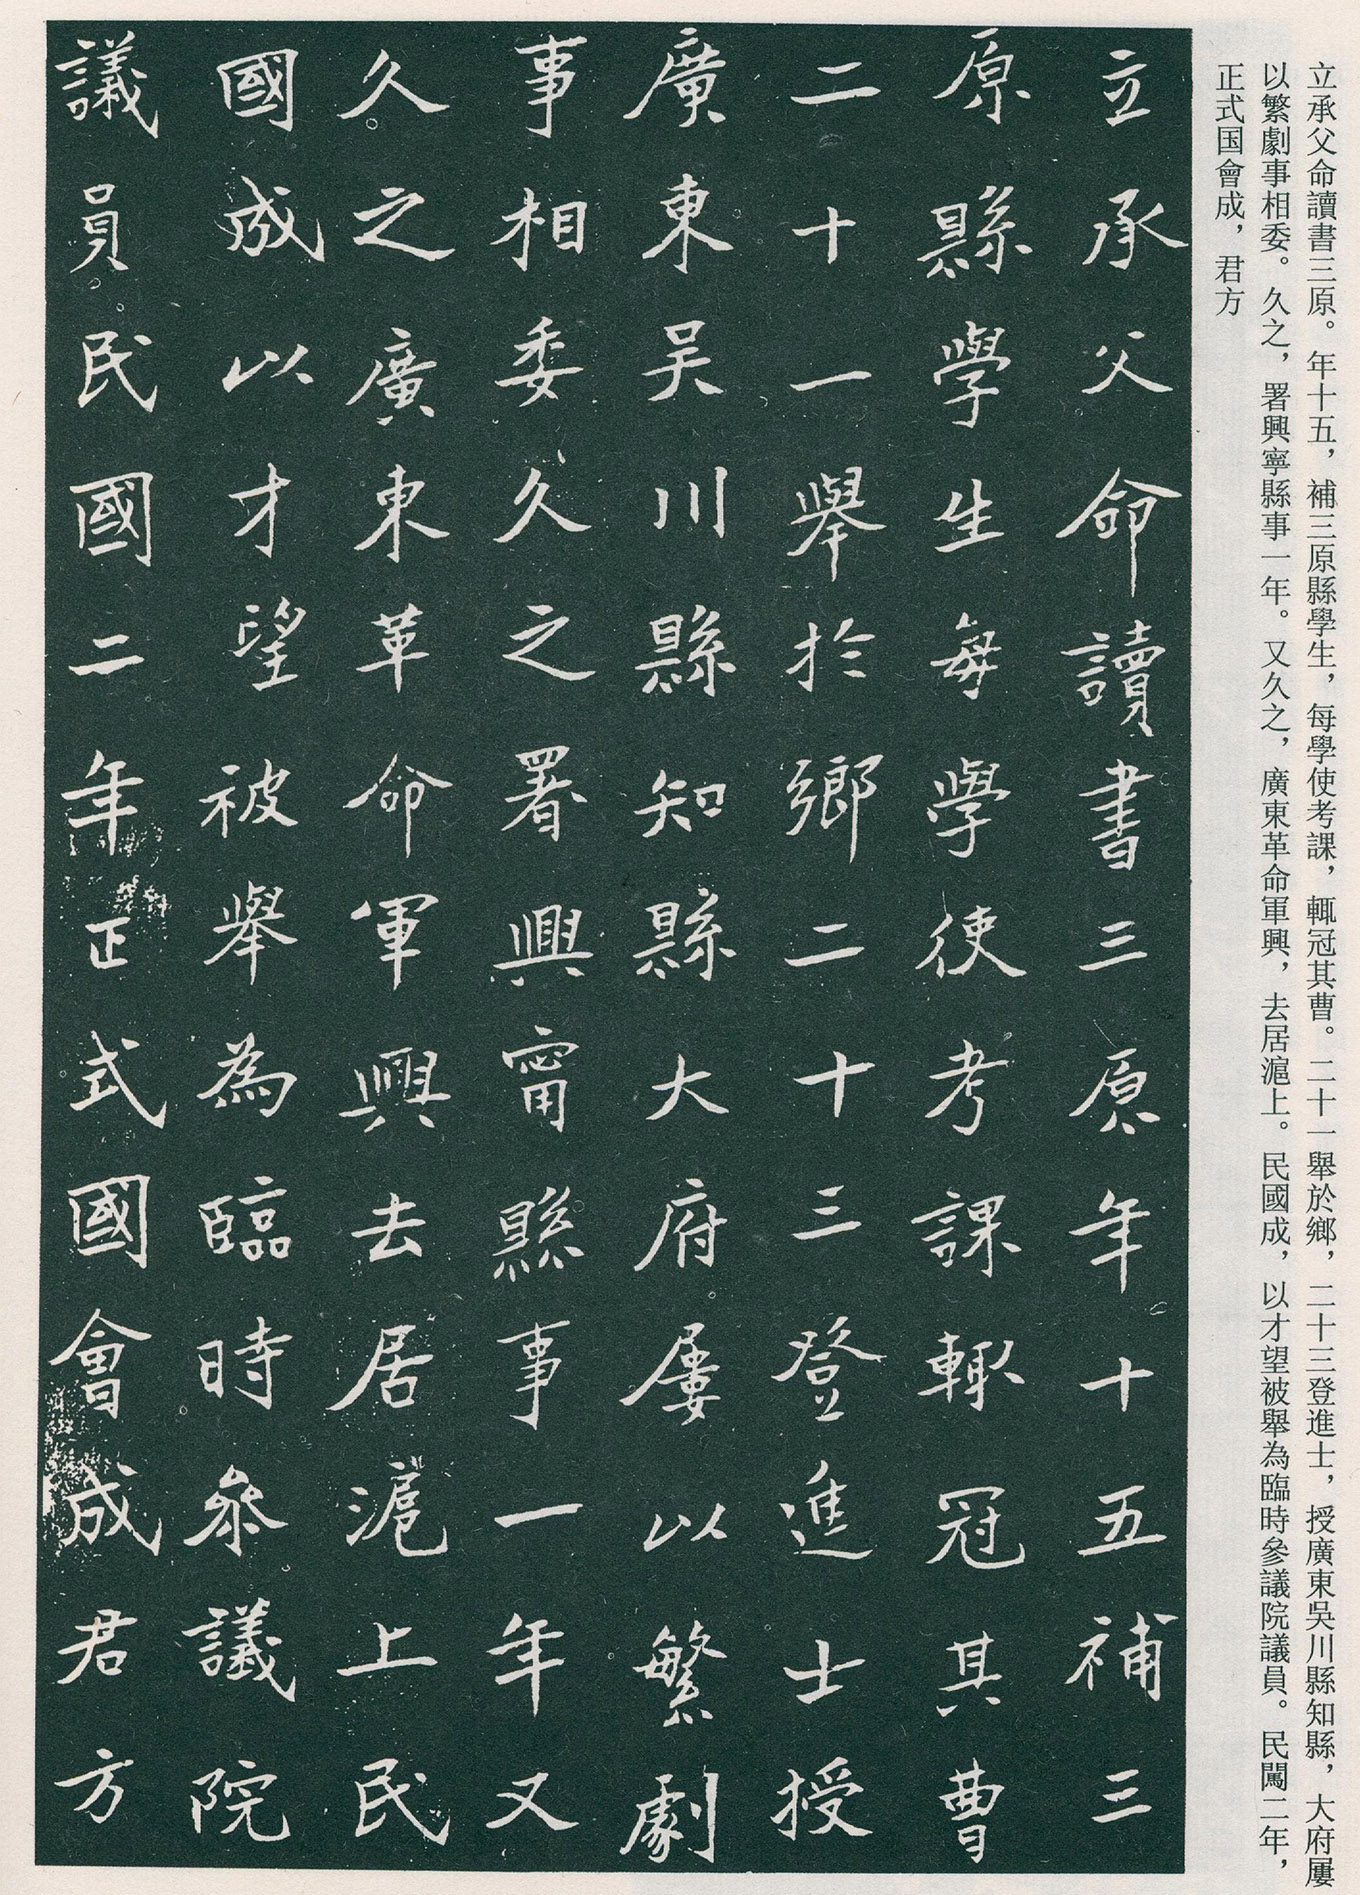 立承父命讀書三原。年十五，補三原縣學生，每學使考課，輒冠其曹。二十一舉於鄉，二十三登進士，授廣東吳川縣知縣，大府屢
以繁劇事相委。久之，署興寧縣事一年。又久之，廣東革命軍興，去居滬上。民國成，以才望被舉為臨時參議院議員。民闖二年，
正式国會成，君方
立承父命讀書三原年十五補三
原縣學生每學使考課輒冠其曹
二十一舉於鄉二十三登進士授
廣東吴川縣知縣大府屢以繁劇
事相委久之署興甯縣事一年又
久之廣東革命軍興去居滬上民
國成以才望被舉為臨時叅議院
議員民國二年正式國會成君方